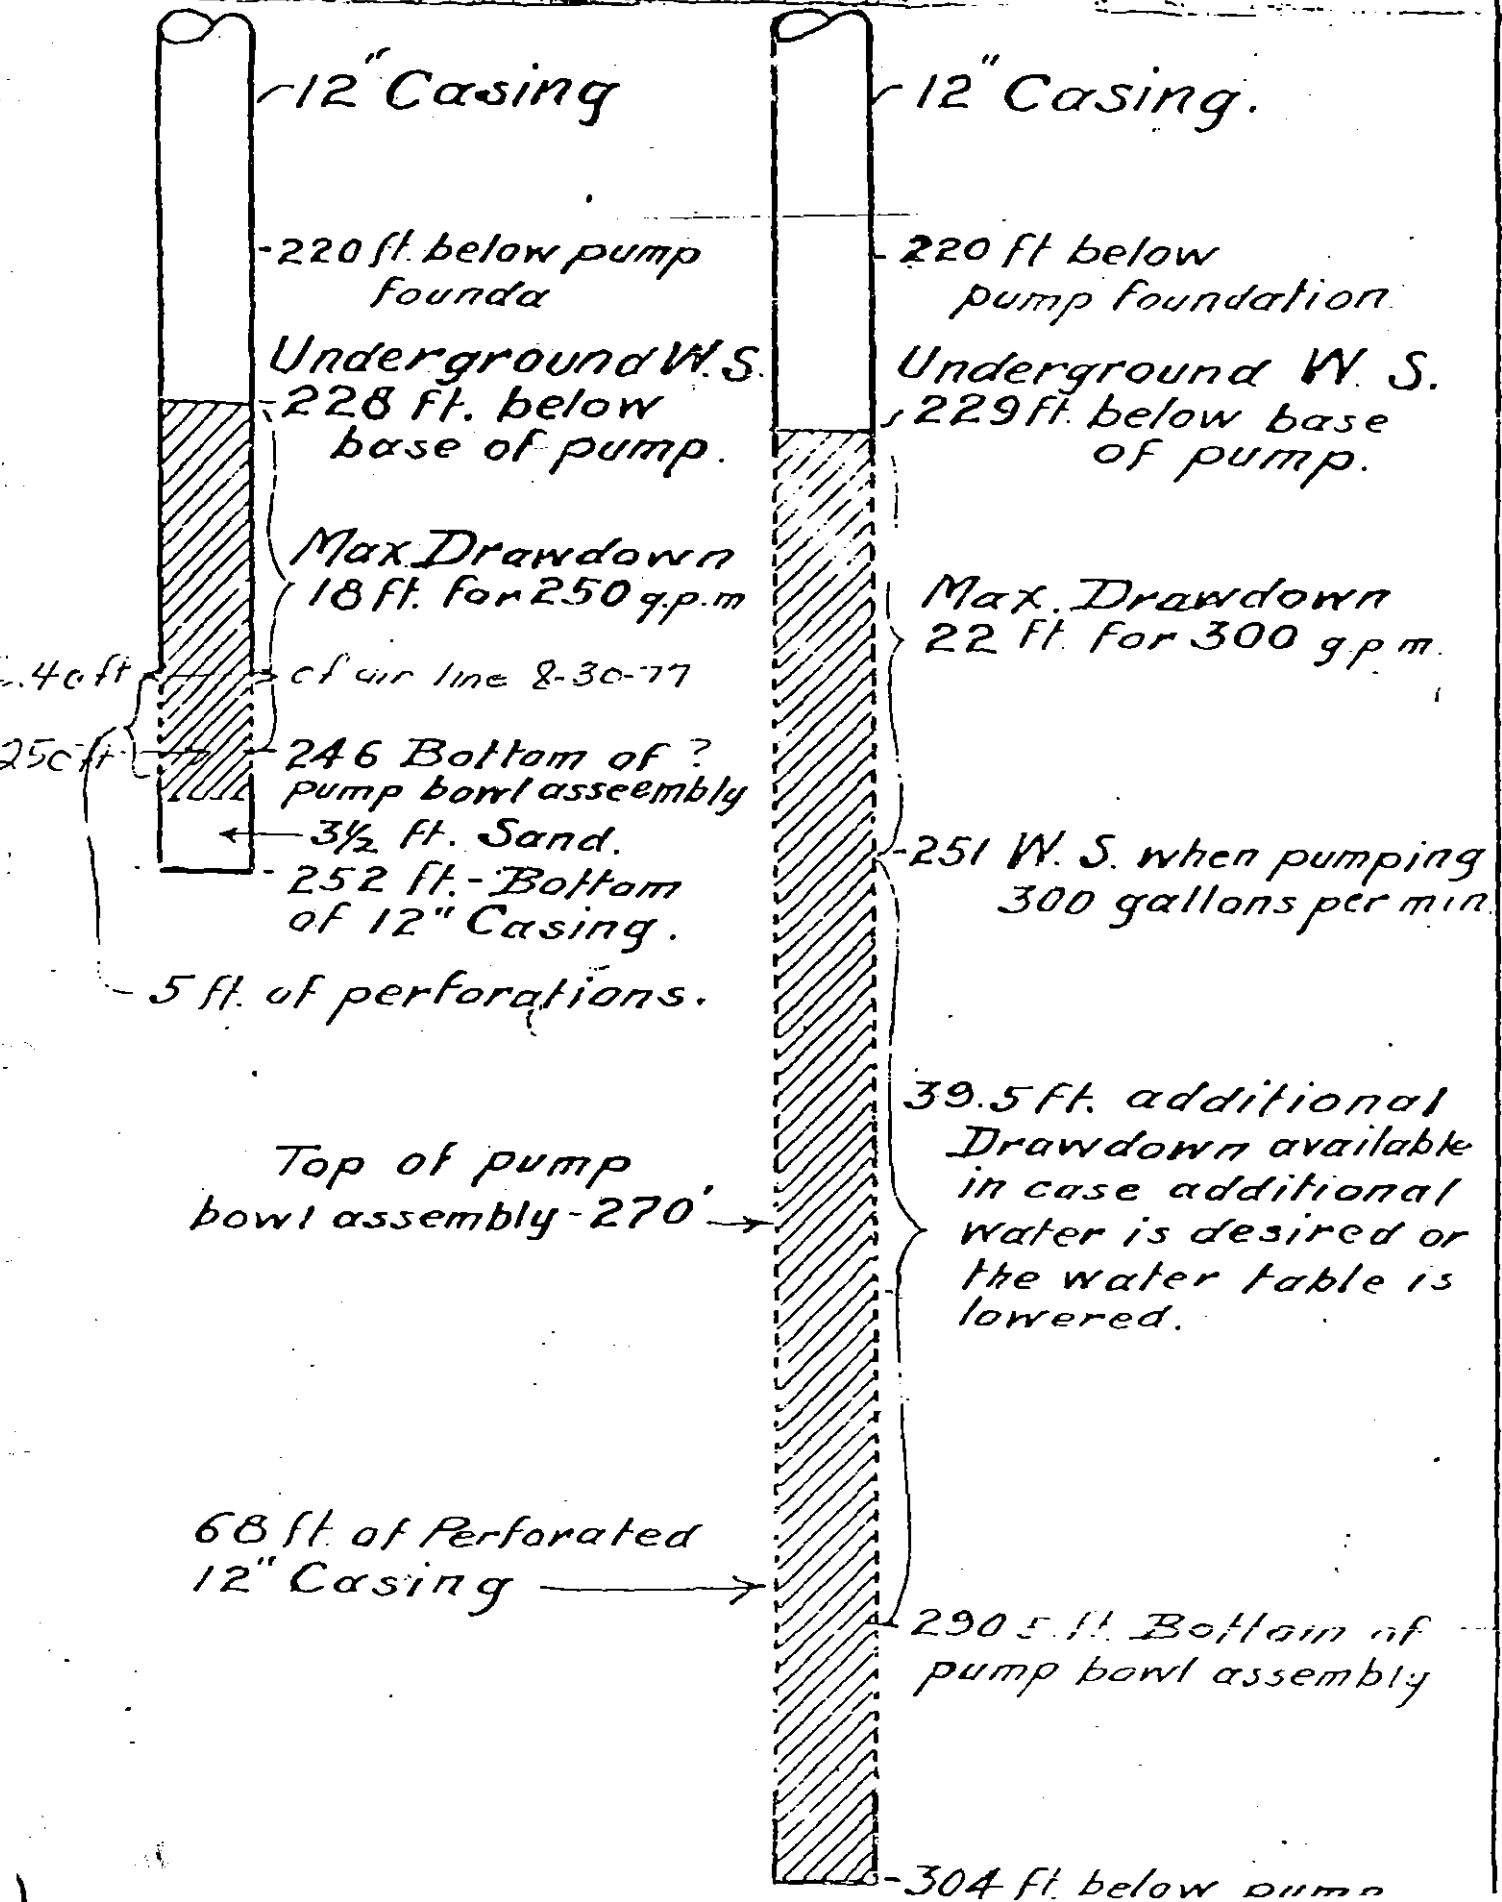 12" Casing
220 ft. below pump
founda
Underground W.S.
228 ft. below
base of pump.
Max. Drawdown
18 ft. for 250 g.p.m
of air line 8-30-77
250 ft
246 Bottom of ?
pump bowl asseembly
3½ ft. Sand.
252 ft.- Bottom
of 12" Casing.
5 ft. of perforations.
Top of pump
bowl assembly - 270'
68 ft. of Perforated
12" Casing
12" Casing.
220 ft below
pump foundation.
Underground W. S.
229 ft. below base
of pump.
Max. Drawdown
22 ft. for 300 g.p.m.
251 W. S. when pumping
300 gallons per min.
39.5 ft. additional
Drawdown available
in case additional
water is desired or
the water table is
lowered.
290.5 ft. Bottom of
pump bowl assembly
304 ft. below pump